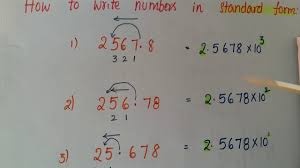 How to write numbers in standard form:
1) 2567.8 = 2.5678×10³
3 2 1
2) 256.78 = 2.5678×10²
2 1
3) 25.678 = 2.5678×10